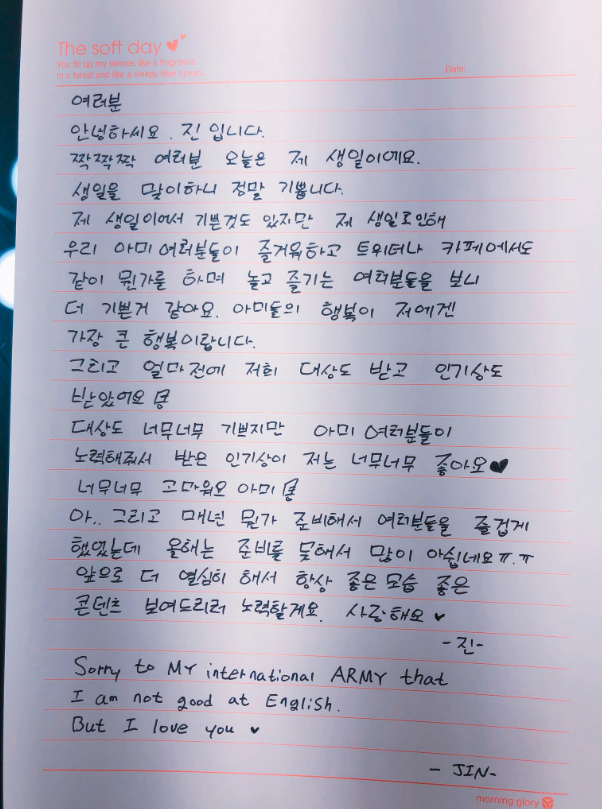 The soft day
You fill up my senses like a fragrance
in a forest and like a sleepy blue ocean...
Date:
여러분
안녕하세요. 진 입니다.
짝짝짝 여러분 오늘은 제 생일이에요.
생일을 맞이하니 정말 기쁩니다.
제 생일이여서 기쁜것도 있지만 제 생일로인해
우리 아미여러분들이 즐거워하고 트위터나 카페에서도
같이 뭔가를 하며 놀고 즐기는 여러분들을 보니
더 기쁜거 같아요. 아미들의 행복이 저에겐
가장 큰 행복이랍니다.
그리고 얼마전에 저희 대상도 받고 인기상도
받았어요
대상도 너무너무 기쁘지만 아미 여러분들이
노력해줘서 받은 인기상이 저는 너무너무 좋아요♥
너무너무 고마워요 아미
아.. 그리고 매년 뭔가 준비해서 여러분들을 즐겁게
했었는데 올해는 준비를 못해서 많이 아쉽네요ㅠ.ㅠ
앞으로 더 열심히 해서 항상 좋은모습 좋은
콘텐츠 보여드리려 노력할게요. 사랑해요♥
-진-
Sorry to MY international ARMY that
I am not good at English.
But I love you ♥
- JIN-
morning glory